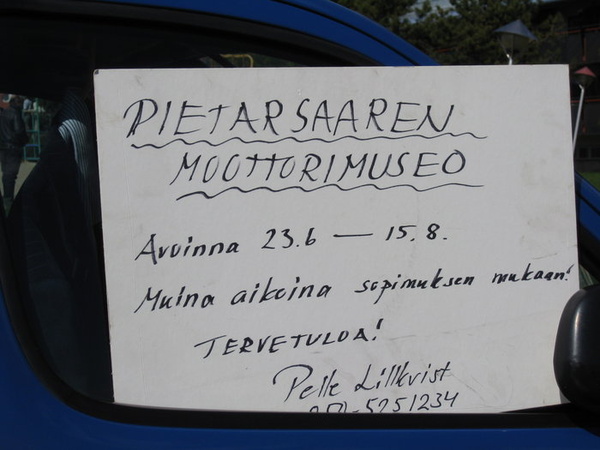 PIETARSAAREN
MOOTTORIMUSEO
Avoinna 23.6 — 15.8.
Muina aikoina sopimuksen mukaan!
TERVETULOA!
Pelle Lillkvist
050-5251234